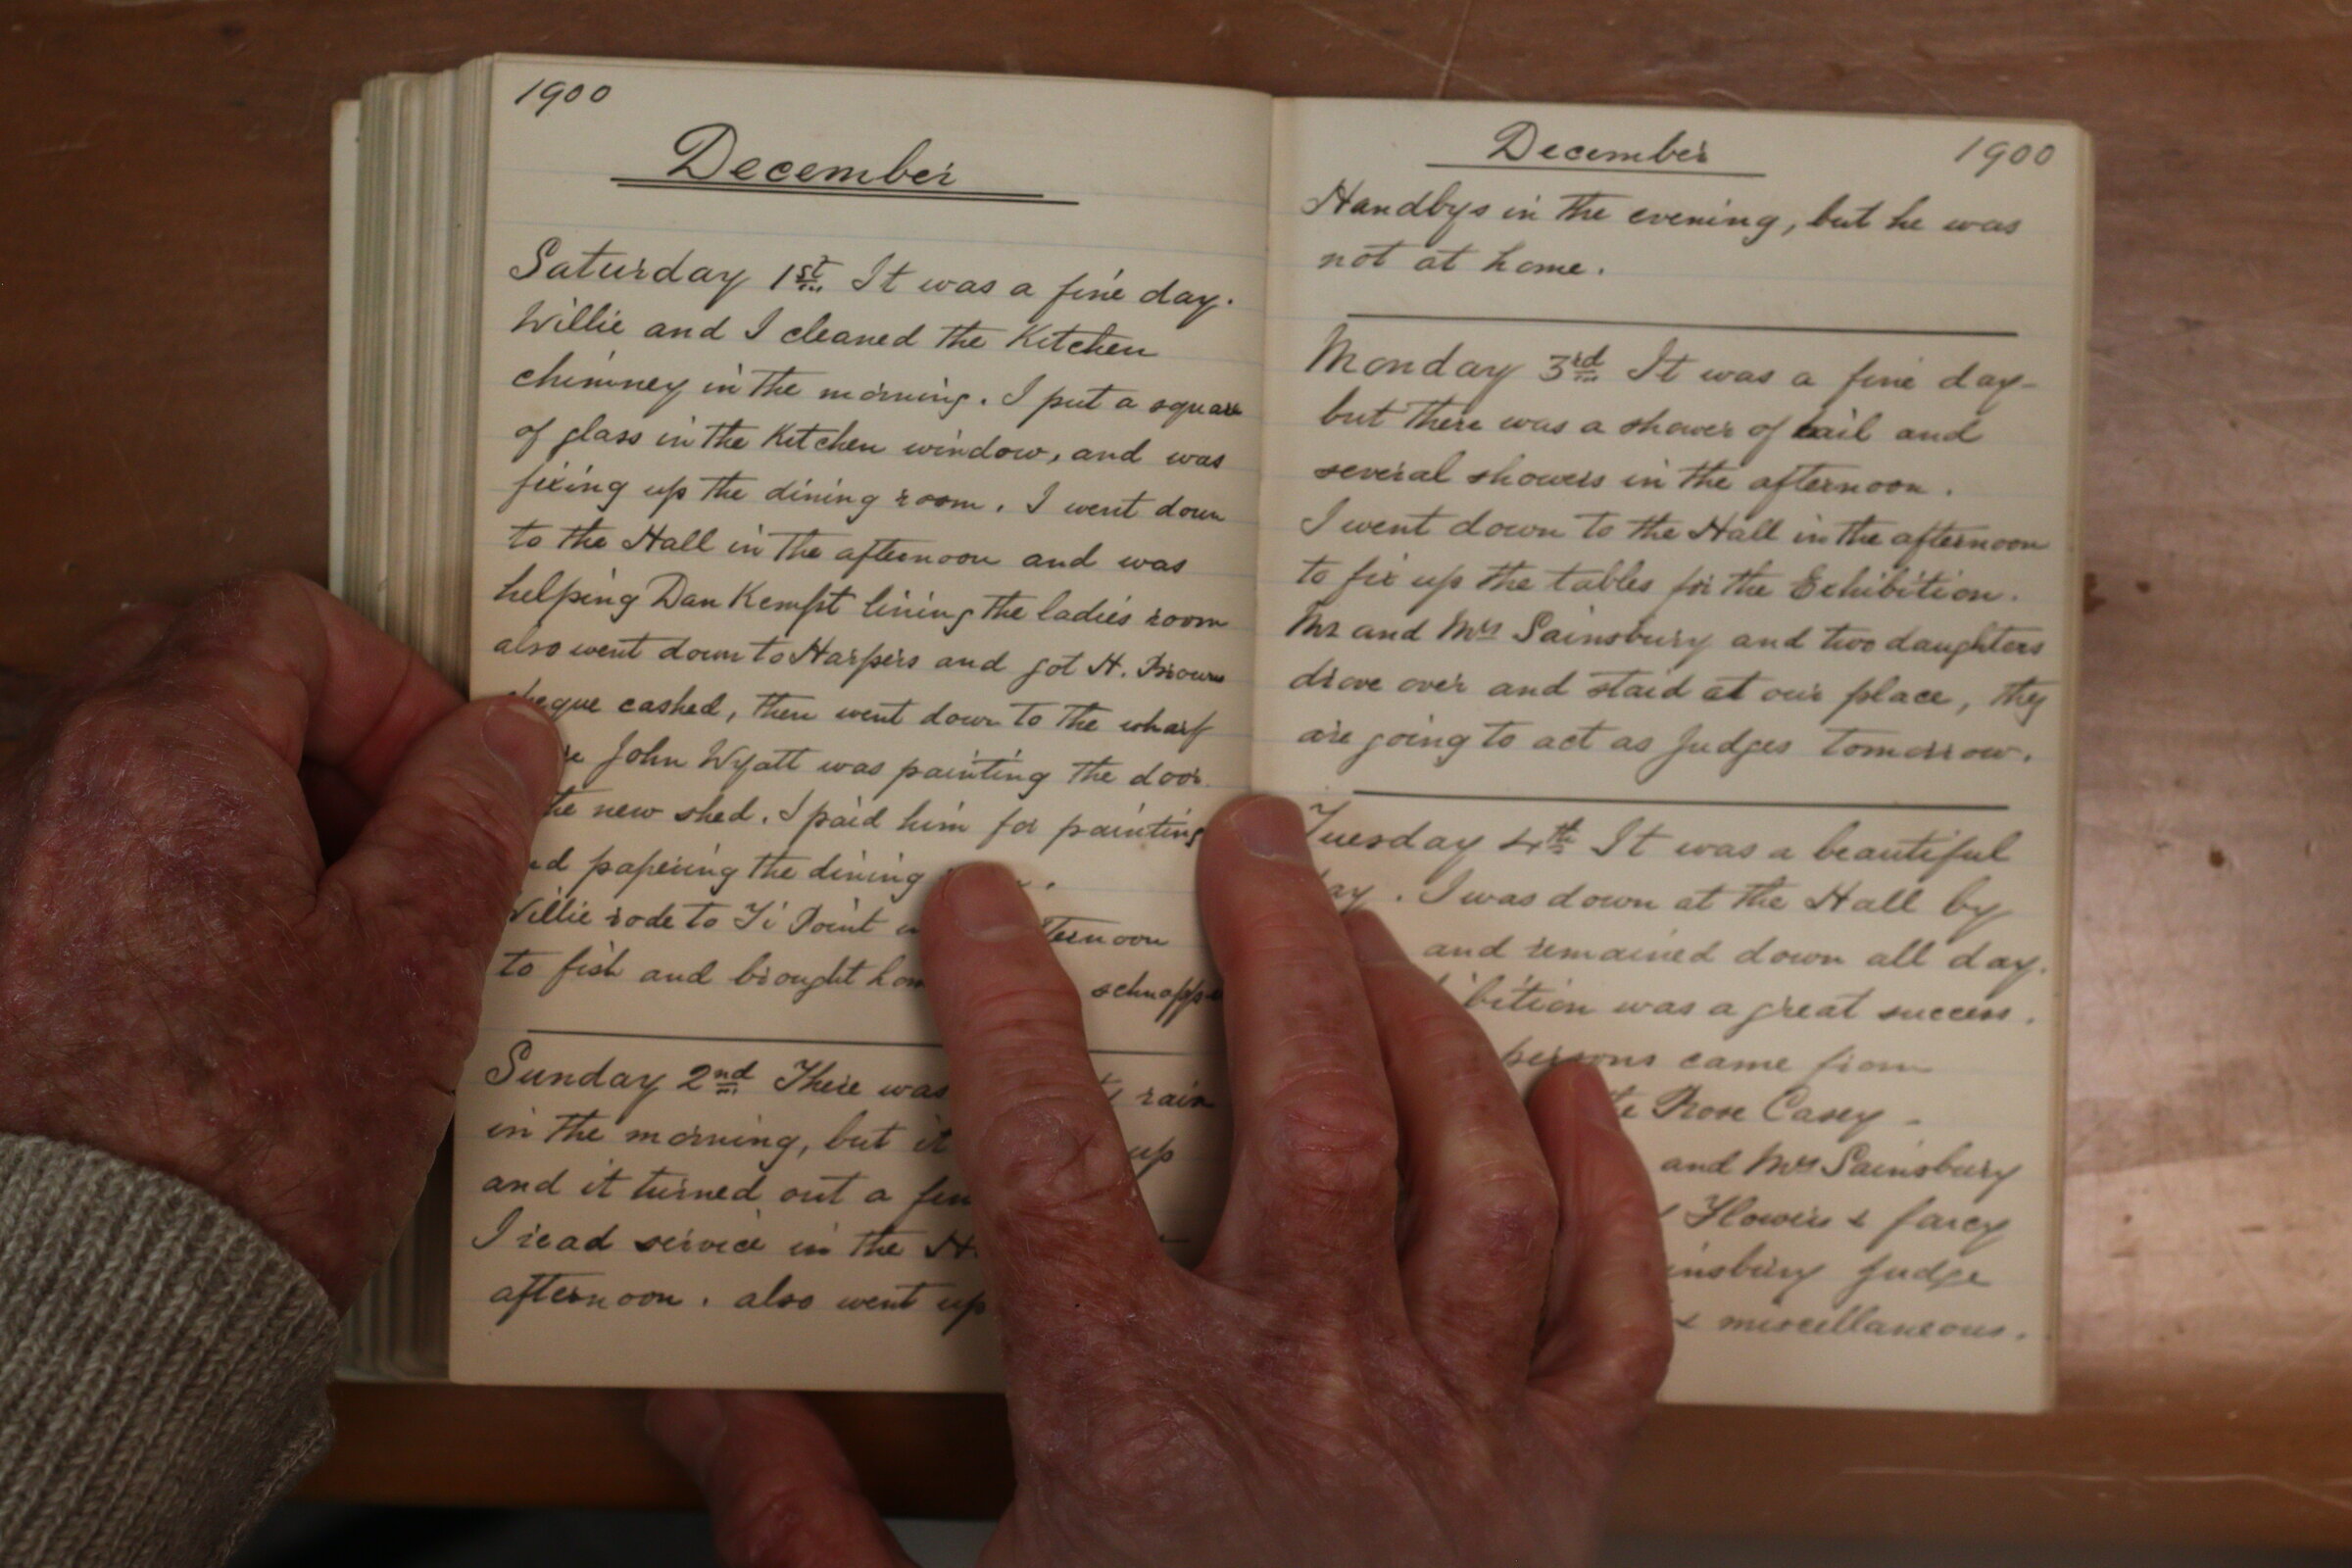 1900
December
Saturday 1st It was a fine day.
Willie and I cleaned the Kitchen
chimney in the morning. I put a square
of glass in the Kitchen window, and was
fixing up the dining room. I went down
to the Hall in the afternoon and was
helping Dan Kempt lining the ladies room
also went down to Harpers and got H. Browns
cheque cashed, then went down to the wharf
John Wyatt was painting the door
the new shed. I paid him for painting
papering the dining
Willie rode to Ti Point
to fish and brought schnapper
Sunday 2nd There was rain
in the morning, but it up
and it turned out a
I read service in the
afternoon. also went up
December 1900
Handbys in the evening, but he was
not at home.
Monday 3rd It was a fine day-
but there was a shower of hail and
several showers in the afternoon.
I went down to the Hall in the afternoon
to fix up the tables for the Exhibition.
Mr and Mrs Sainsbury and two daughters
drove over and staid at our place, they
are going to act as Judges tomorrow.
Tuesday 4th It was a beautiful
day. I was down at the Hall by
and remained down all day.
was a great success.
persons came from
Rose Casey -
and Mrs Sainsbury
Flowers & fancy
Judge
& miscellaneous.